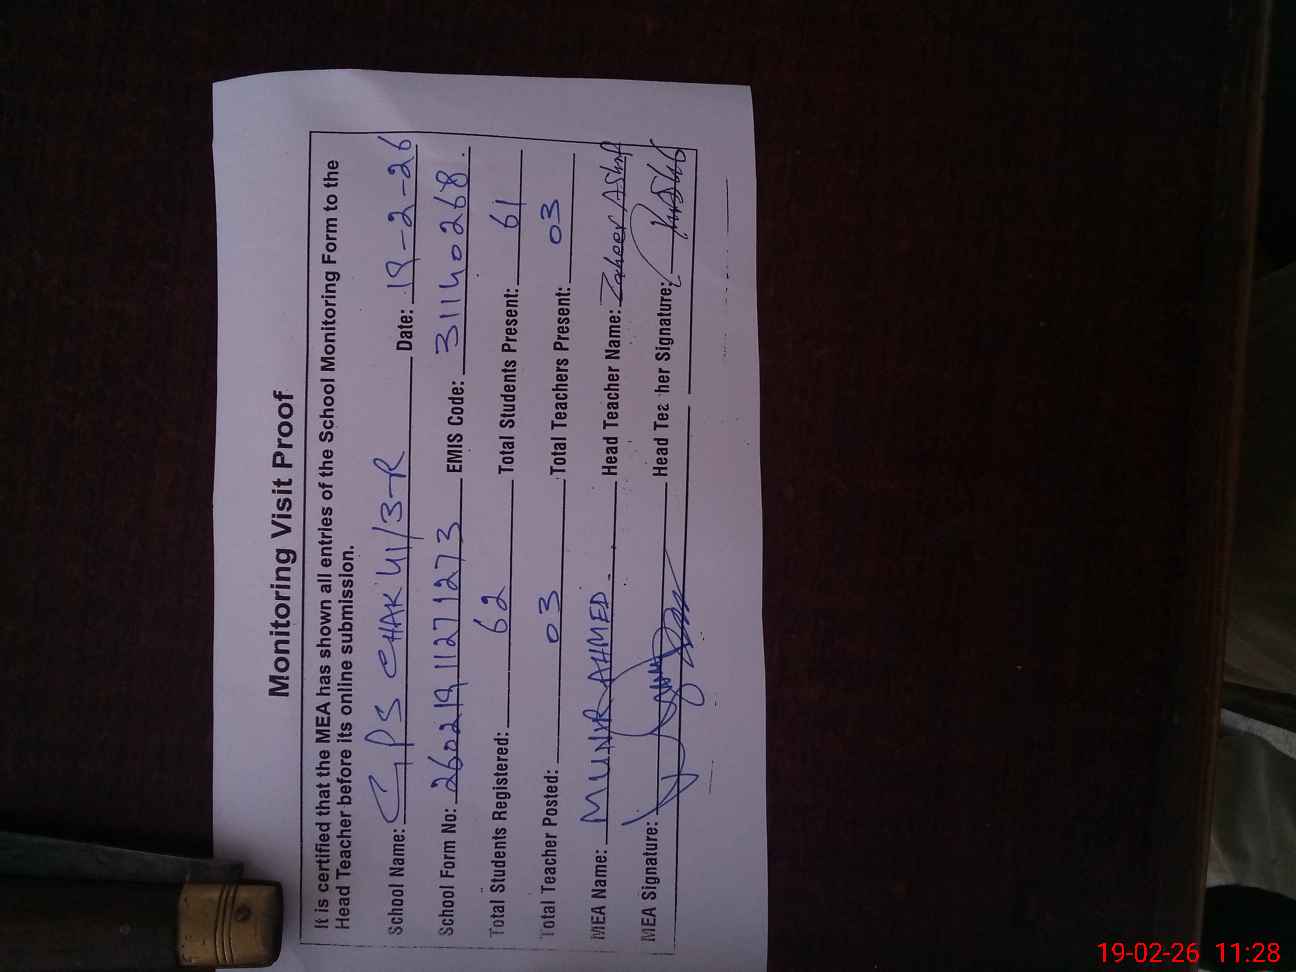 Monitoring Visit Proof
It is certified that the MEA has shown all entries of the School Monitoring Form to the
Head Teacher before its online submission.
School Name: GPS CHAK 41/3-R Date: 19-2-26
School Form No: 26021911271273 EMIS Code: 31140268.
Total Students Registered: 62 Total Students Present: 61
Total Teacher Posted: 03 Total Teachers Present: 03
MEA Name: MUNIR AHMED Head Teacher Name: Zaheer Ashraf
MEA Signature: Head Teacher Signature:
19-02-26 11:28